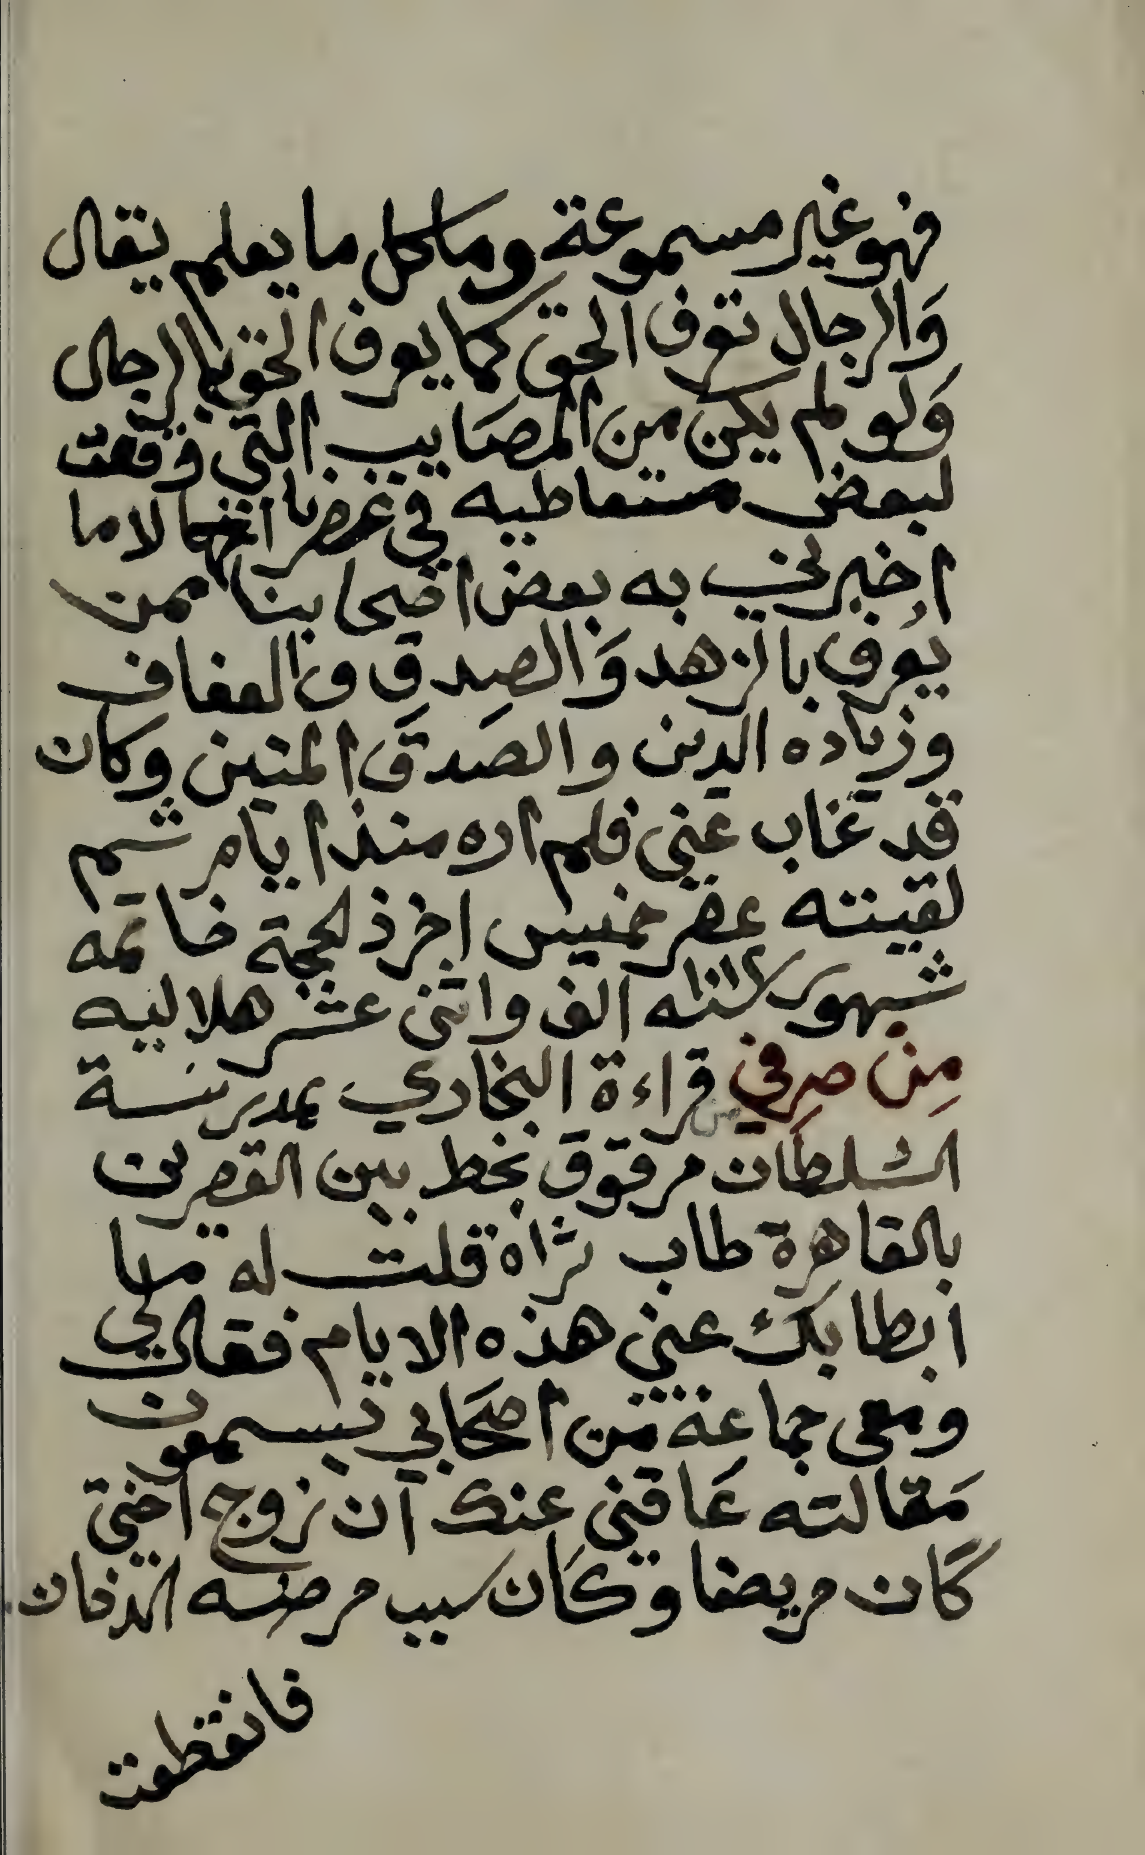 فهو غير مسموعة وما كل ما يعلم يقال
وَالرجال تعرف الحق كما يعرف الحق بالرجال
وَلو لم يكن من المصايب التي وقعت
لبعض متعاطيه في عصرنا الا ما
اخبرني به بعض اصحابنا ممن
يُعرف بالزهد وَالصِدق والعفاف
وزياده الدين والصَدق المتين وكان
قد غاب عني فلم اره منذ ايام ثم
لقيته عصر خميس اخر ذلحجة خاتمه
شهور سنه ١٠١٢ الف واثنى عشر هلاليه
مِن صرفي قراءة البخاري بمدرسة
السُلطان مرقوق بخط بين القصرين
بالقاهرة طاب ثراه قلت له ما
ابطا بك عني هذه الايام فقال لي
ومعى جماعة من اصحَابي يسمعون
مَقالته عَاقني عنك ان زوج اختي
كَان مريضا وكَان سبب مرضه الدخان
فانقطعت